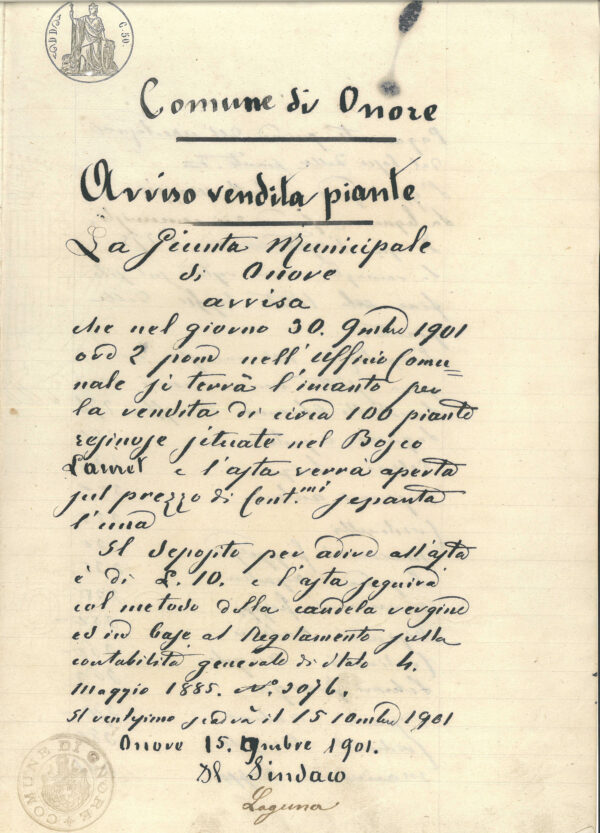 C. 50.
Comune di Onore
Avviso vendita piante
La Giunta Municipale
di Onore
avvisa
che nel giorno 30. 9mbre 1901
ore 2 pom nell'Ufficio Comu=
nale si terrà l'incanto per
la vendita di circa 100 piante
resinose situate nel Bosco
Lauret e l'asta verrà aperta
sul prezzo di Cent.mi sessanta
l'una
Il deposito per adire all'asta
è di L. 10. e l'asta seguirà
col metodo della candela vergine
ed in base al Regolamento sulla
contabilità generale di Stato 4.
Maggio 1885. N.° 3076.
Il ventesimo scadrà il 15 10mbre 1901
Onore 15. 9mbre 1901.
Il Sindaco
Laguna
COMUNE DI ONORE